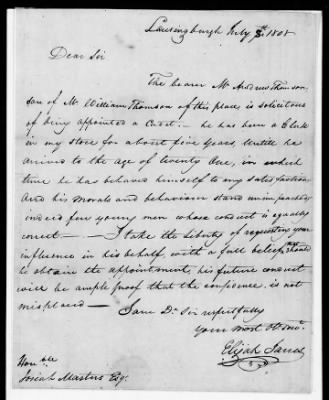 Lansingburgh July 3d 1808
Dear Sir
The bearer Mr Andrew Thomson,
son of Mr William Thomson of this place is solicitous
of being appointed a Cadet. — he has been a Clerk
in my store for about five Years, Untill he
arived to the age of twenty One, in which
time he has behaved himself to my satisfaction
And his Morals and behaviour stand unimpeached
indeed few young men whose conduct is equally
correct — I take the liberty of requesting your
influence in his behalf, with a full belief, that should
he obtain the appointment, his future conduct
will be ample proof that the confidence is not
misplaced —
I am Dr Sir respectfully
your most Obt
Elijah
Honble
Josiah Masters Esq.